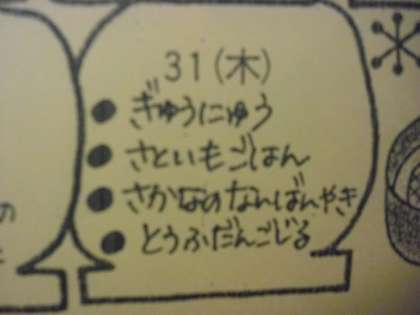 31(木)
●ぎゅうにゅう
●さといもごはん
●さかなのなんばんやき
●とうふだんごじる
の